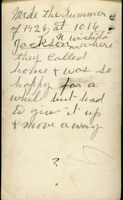 Made the Summer
of 1926, at 1016
Jackson N. Wichita
where
they called
home & was so
happy for a
while but had
to give it up
& move away
?